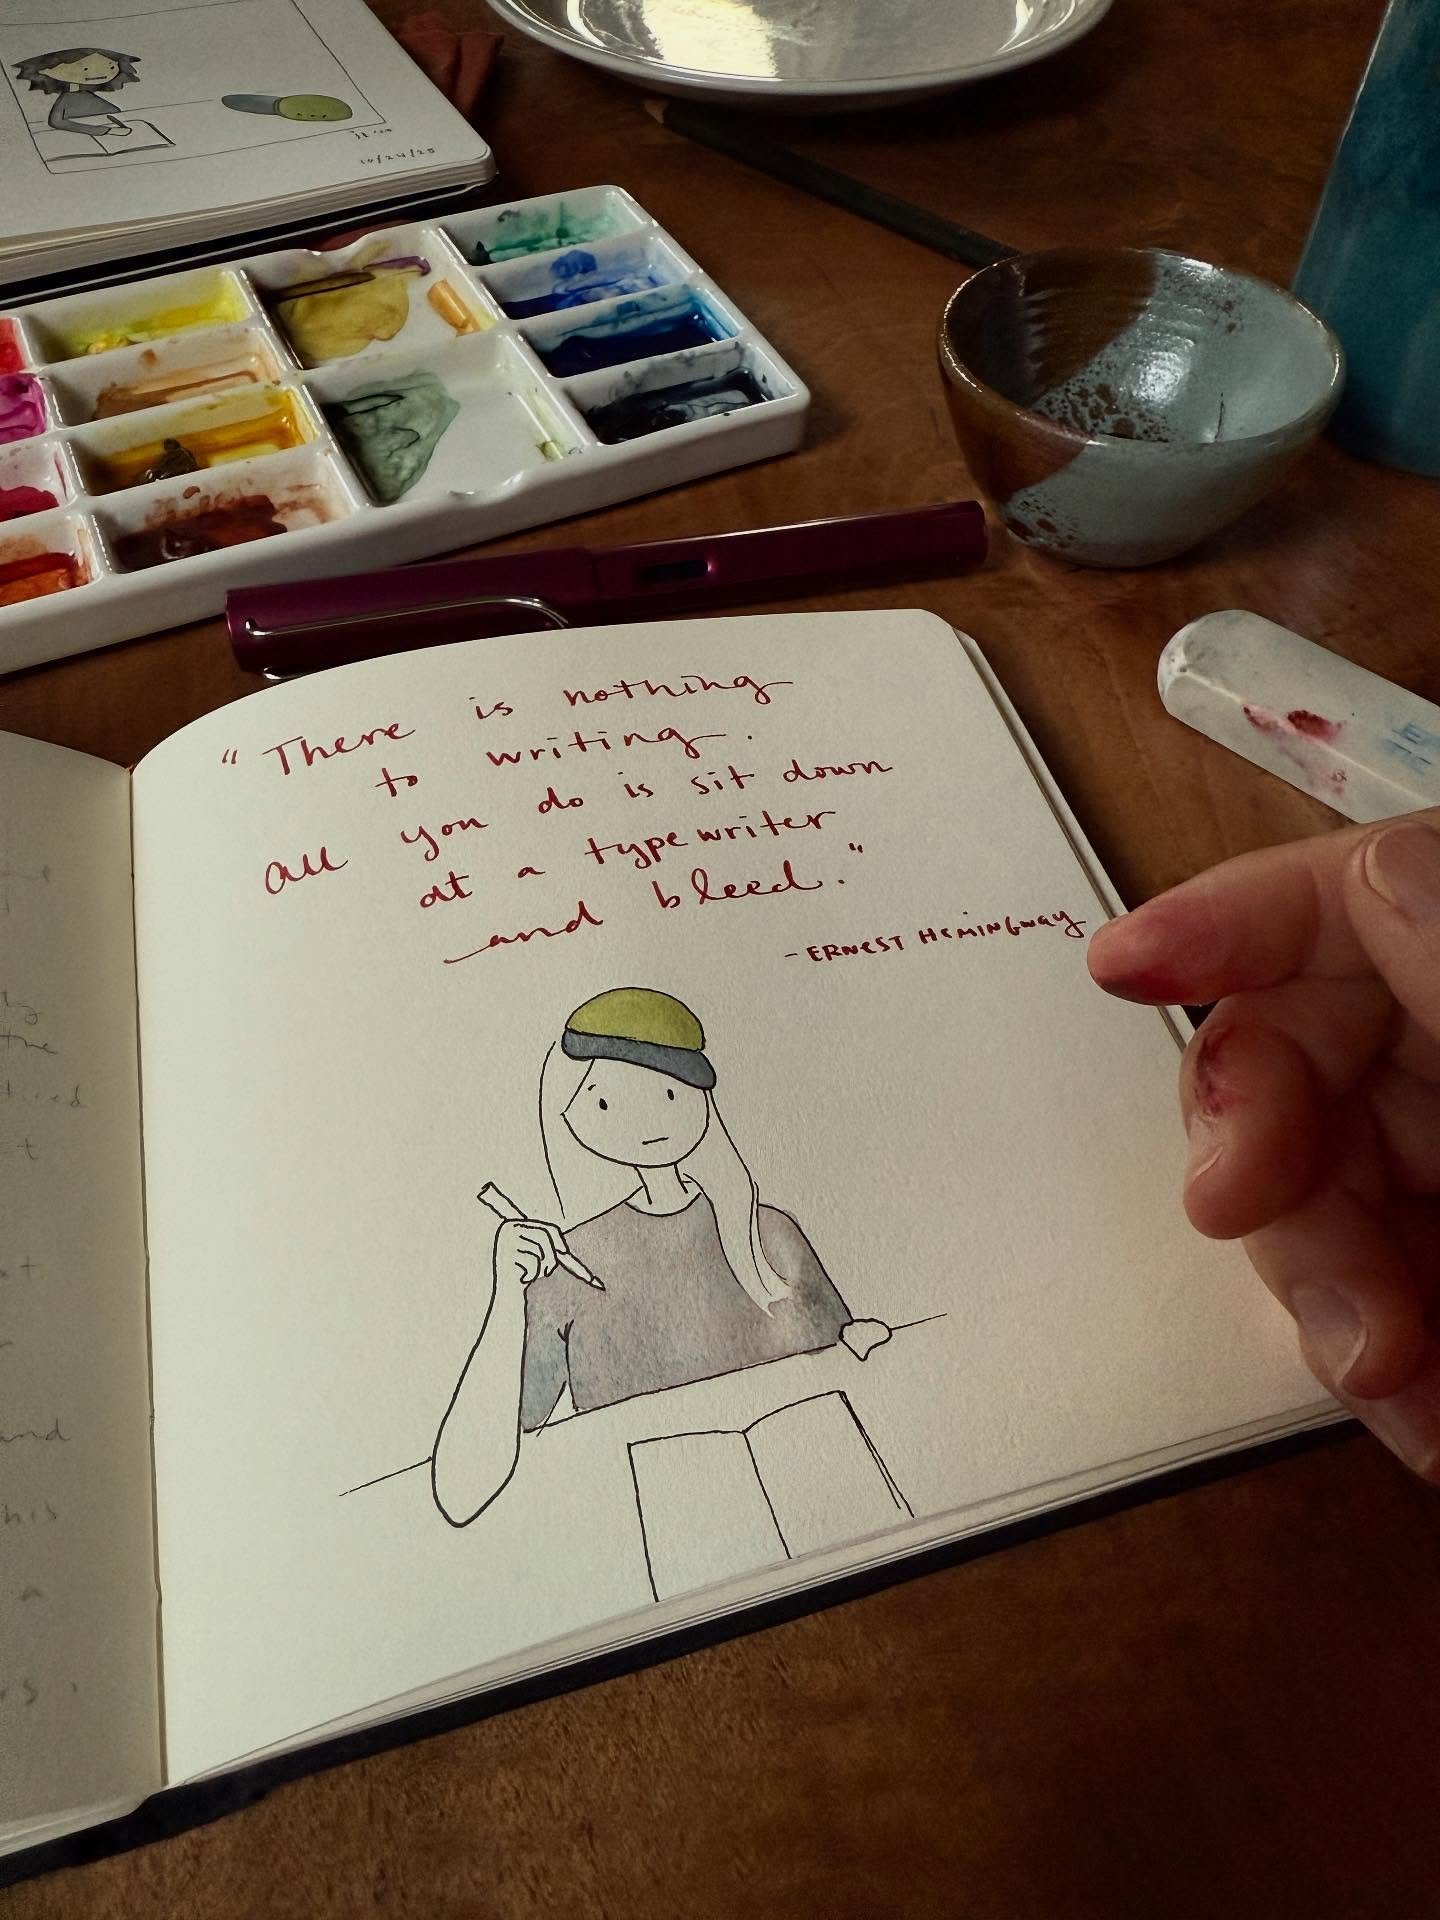 JH '25
10/24/25
"There is nothing
to writing.
All you do is sit down
at a typewriter
and bleed."
- ERNEST HEMINGWAY
the
and
his
a